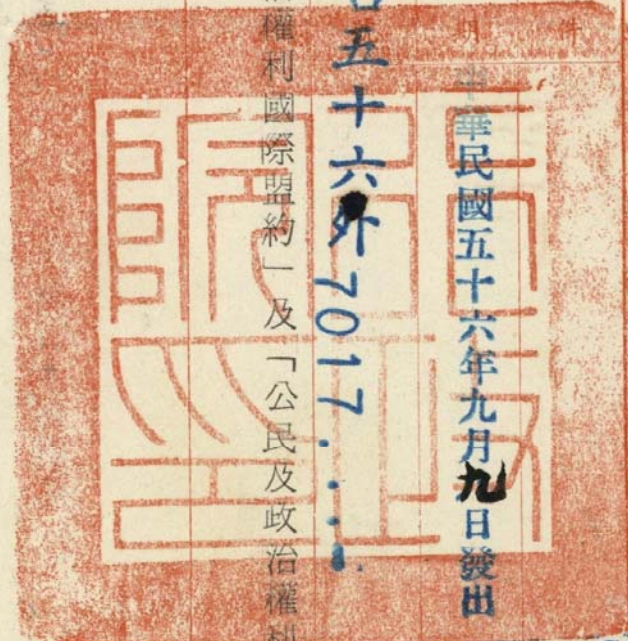 中華民國五十六年九月九日發出
五十六外7017....
權利國際盟約」及「公民及政治權利
行政院印